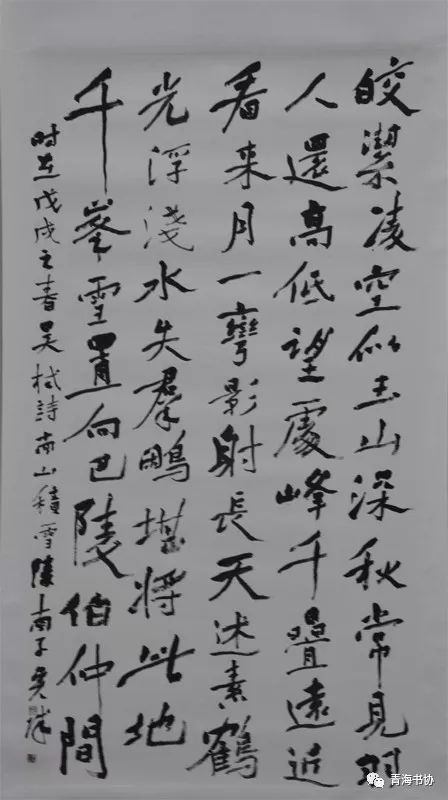 皎潔凌空似玉山深秋常見羽
人還高低望處峰千疊遠近
看来月一彎影射長天迷素鶴
光浮淺水失羣鷴堪將此地
千峯雪置向巴陵伯仲間
时在戊戌之春吴栻詩南山積雪
青海书协